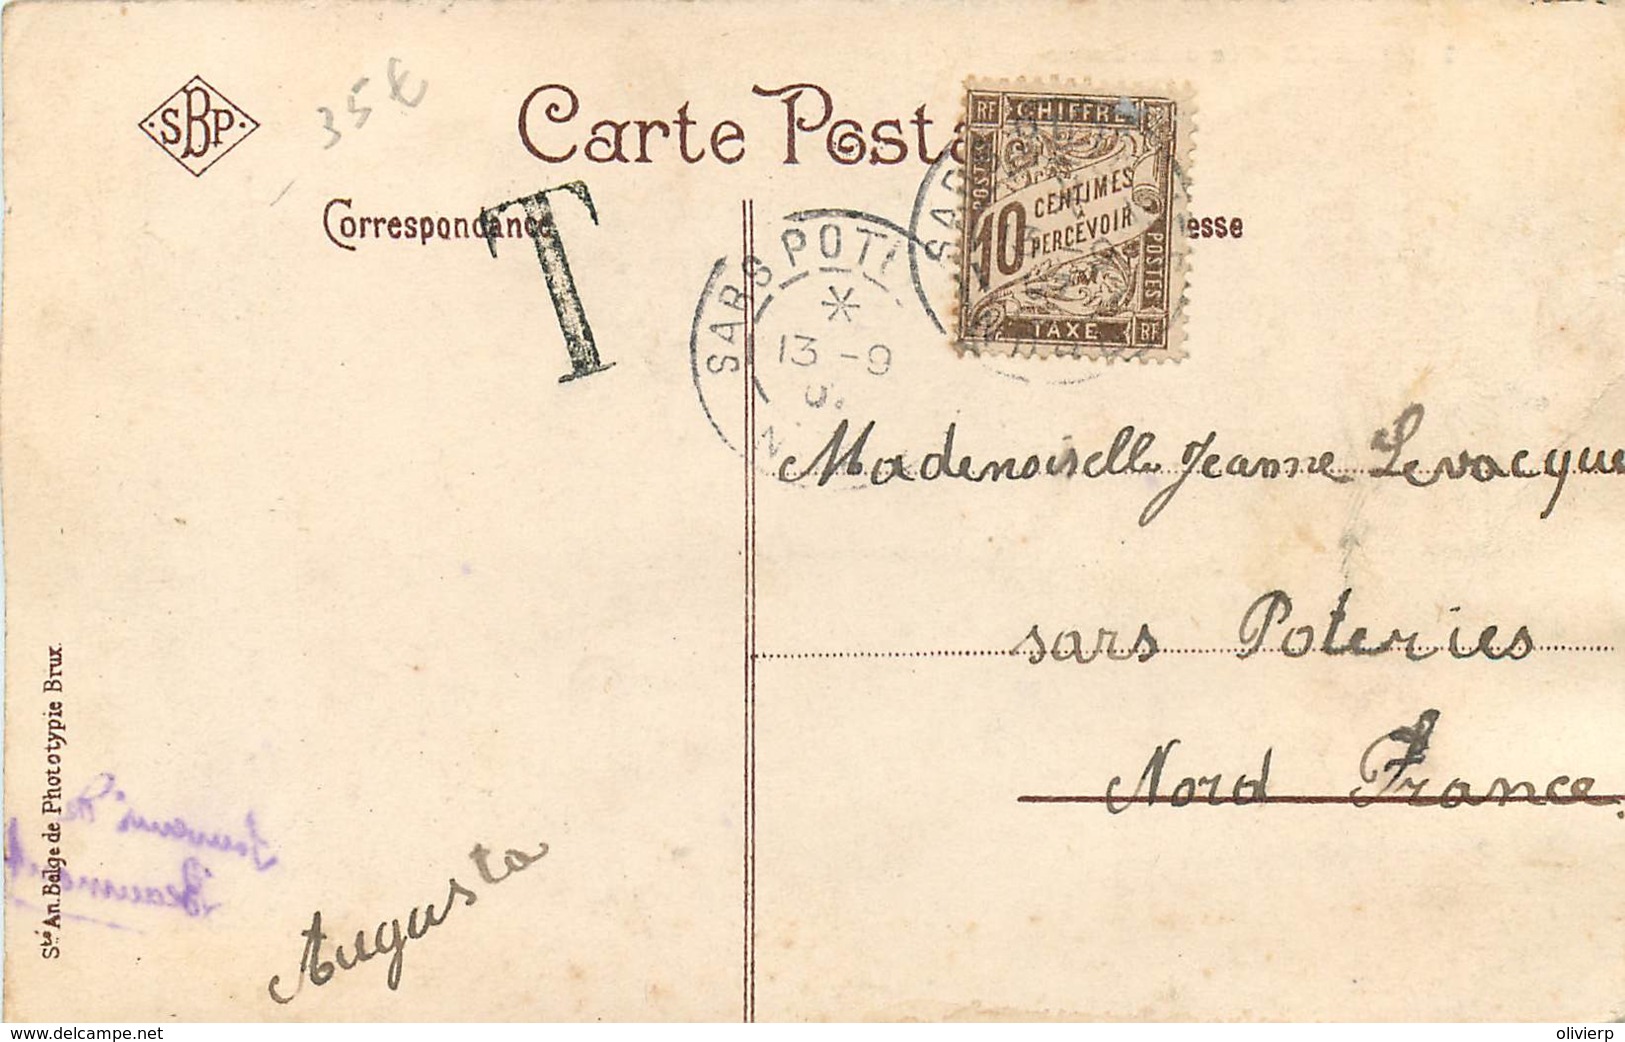 SBP
35 €
Carte Posta
Correspondance
esse
T
SARS POT
13 -9
RF CHIFFRE
POSTES
10 CENTIMES
À
PERCEVOIR
POSTES
TAXE RF
Mademoiselle Jeanne Levacque
sars Poteries
Nord France
Augusta
Souvenir de
Beaumont
Sté An. Belge de Phototypie Brux.
www.delcampe.net
olivierp